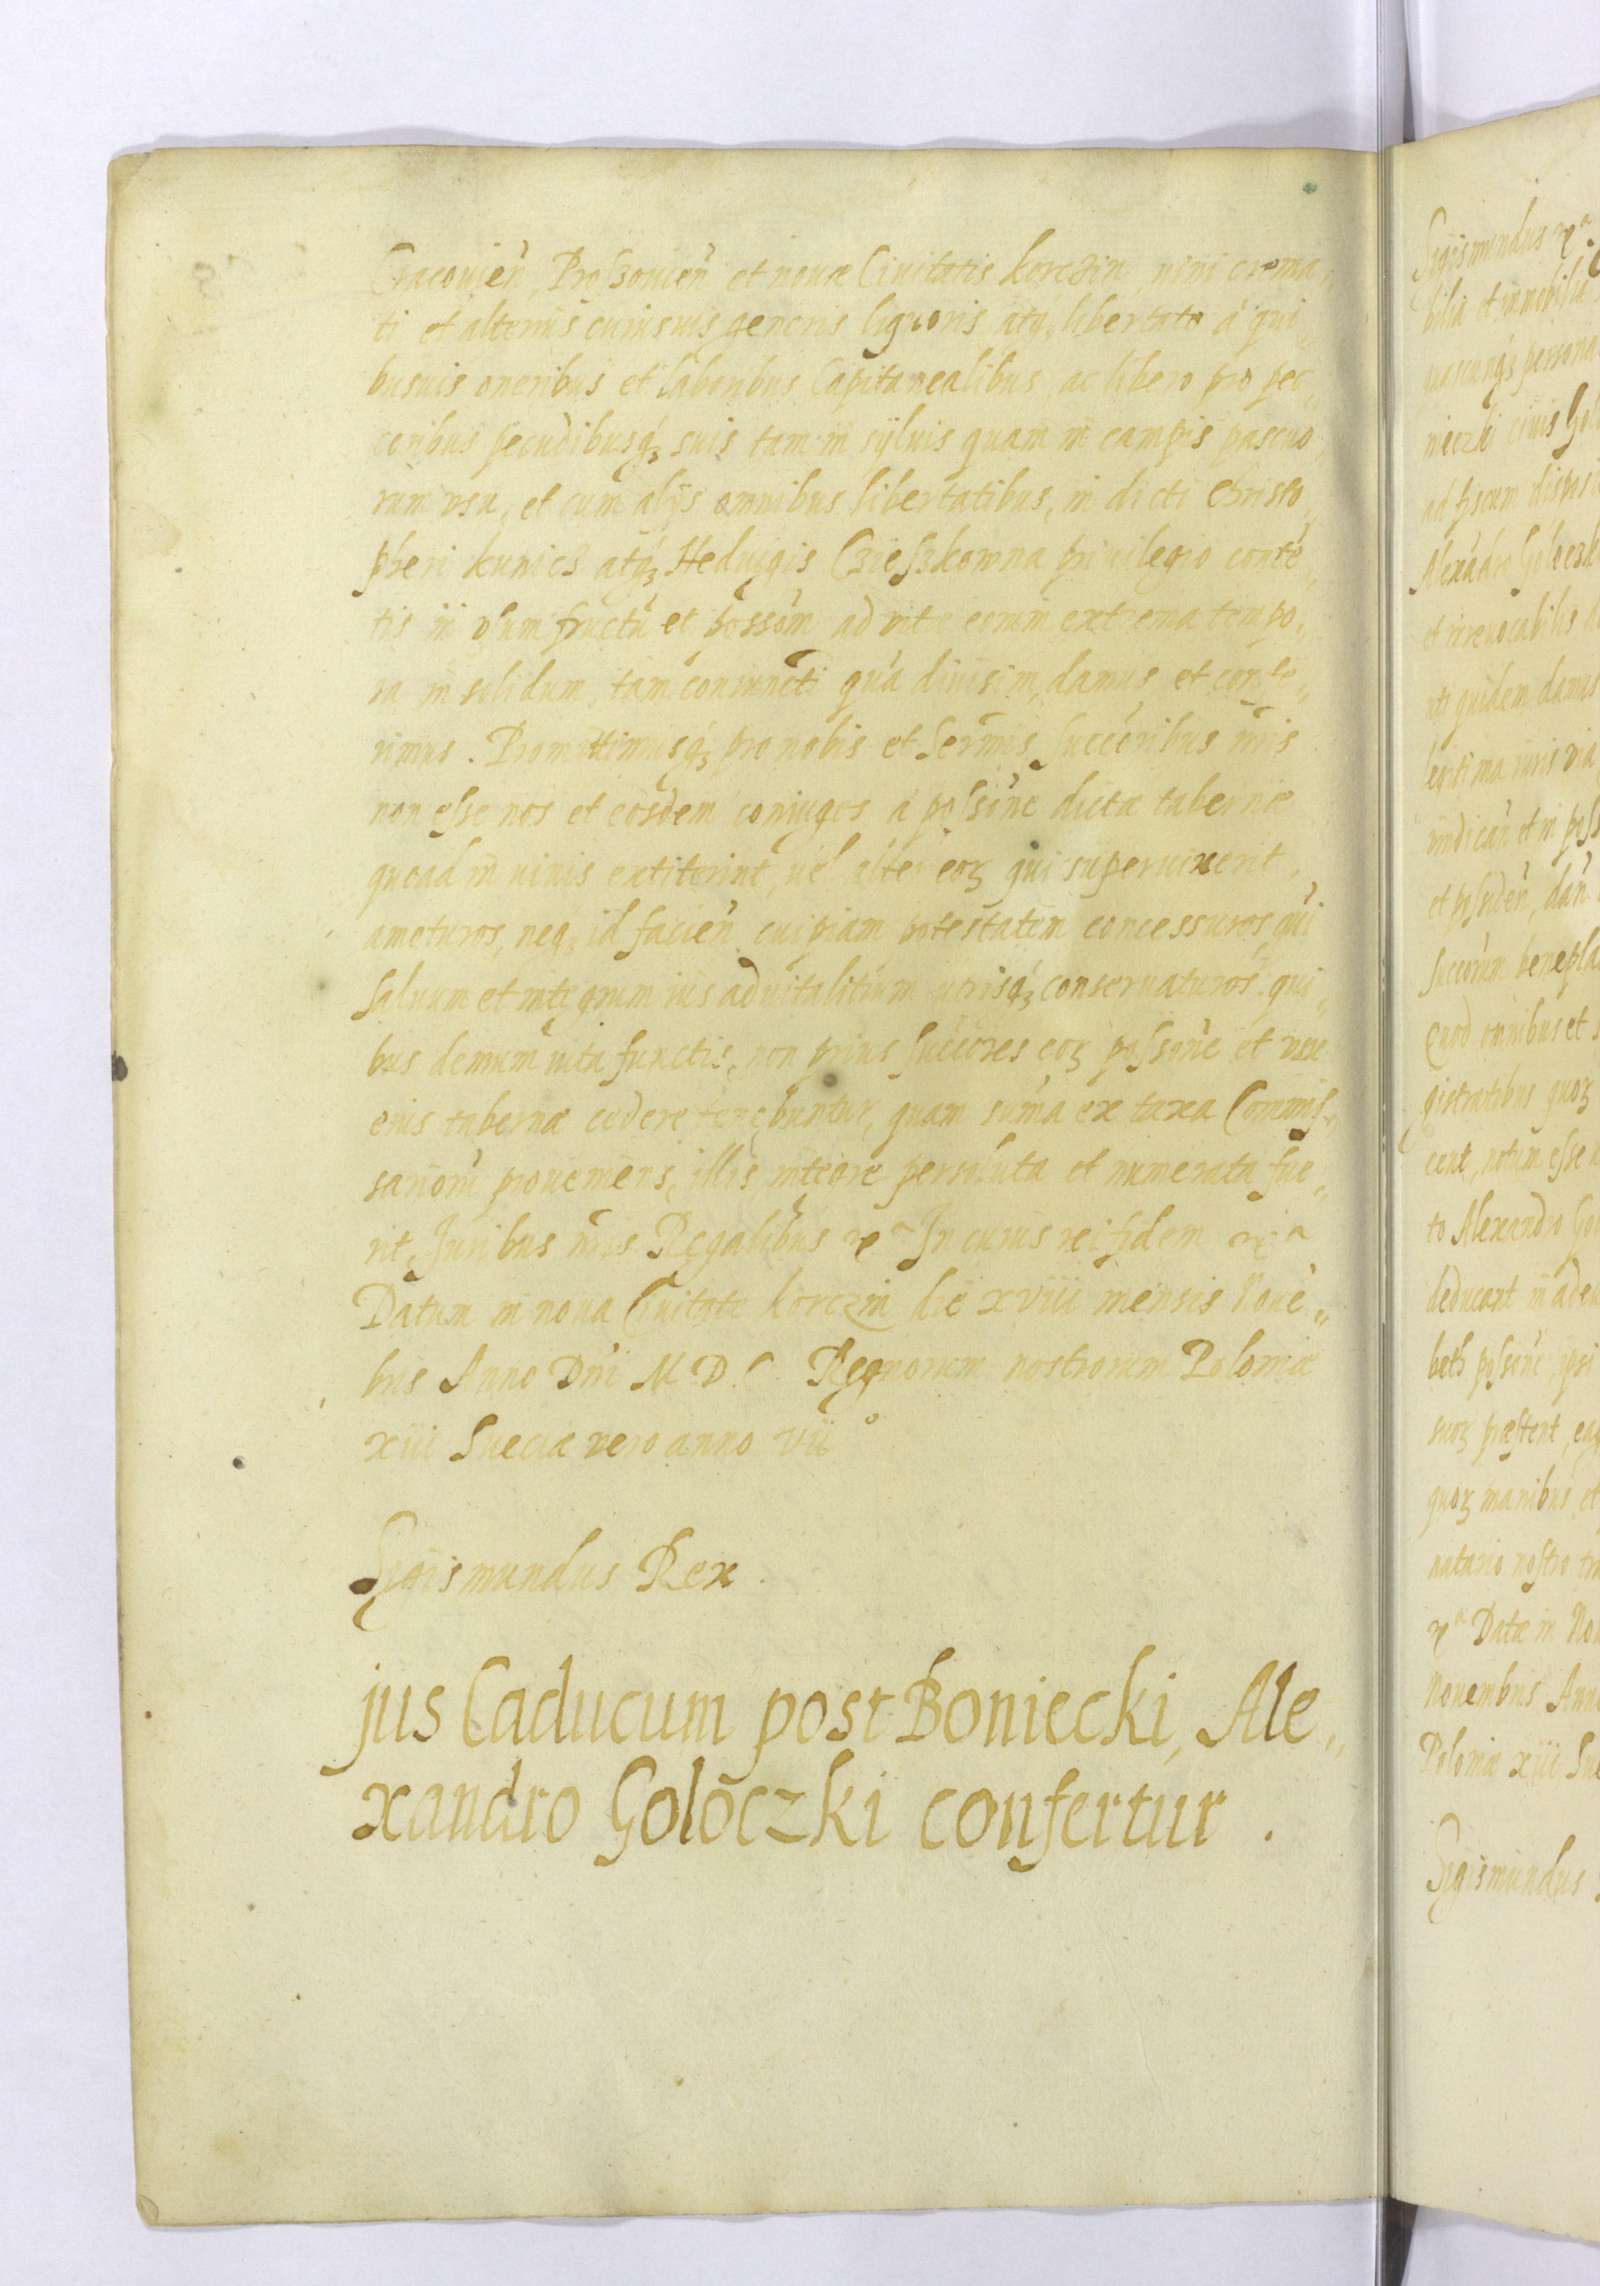 Cracouien̄, Proszouien̄ et nouæ Ciuitatis korczin vini crema„
ti et alterius cuiusuis generis liquoris atq₃ libertate à qui„
busuis oneribus et laboribus Capitanealibus, ac libero pro pec„
coribus pecudibusq₃ suis tam in syluis quam in campis pascuo„
rum vsu, et cum alijs omnibus libertatibus, in dicti Christo„
pheri kunics atq₃ Heduigis Czieszkowna priuilegio contē„
tis in vsum fructū et possom̄ ad vitæ eorum extrema tempo„
ra in solidum, tam coniuncti quā diuisim, damus et confe„
rimus. Promittimusq₃ pro nobis et Serm̄is Succōribus nr̄is
non esse nos et eosdem coniuges a possōne dictæ tabernæ
quoad in uiuis extiterint, uel alter eoꝝ qui superuixerit,
amoturos, neq₃ id facien̄ cuipiam potestatem concessuros, qui
saluum et integrum ius aduitalitium utrisq₃ conseruaturos. qui„
bus demum uita functis, non prius succōres eoꝝ possōne et vsu
eius tabernæ cedere tenebuntur, quam sum̄a ex taxa Commis„
sariorū proueniens, illis integre persoluta et numerata fue„
rit, Juribus nr̄is Regalibus ꝛcª In cuius rei fidem ꝛcª
Datum in noua Ciuitate korczin die xviii mensis Nouē„
bris Anno Dn̄i M D C Regnorum nostrorum Poloniæ
xiii Sueciæ vero anno vii°
Sigismundus Rex.
jus Caducum post Boniecki, Ale„
xandro Goloczki confertur.
Sigismundus ꝛcª
bilia et immobilia
quascunq₃ persona
nieczki ciuis
ad fiscum disposi
Alexādro Goloczki
et irreuocabilis
uti quidem damus
legitima iuris via
vindicān et in poss
et possiden̄, dan̄
Succōrum benepla
Quod omnibus et
gistratibus quoꝝ
cent, notum esse
to Alexandro Go
deducant
possōne, ipsi
suoꝝ præstent, eaq
quoꝝ manibus, et
notario nostro tra
ꝛcª Datæ in No
Nouembris Anno
Poloniæ xiii Sue
Sigismundus